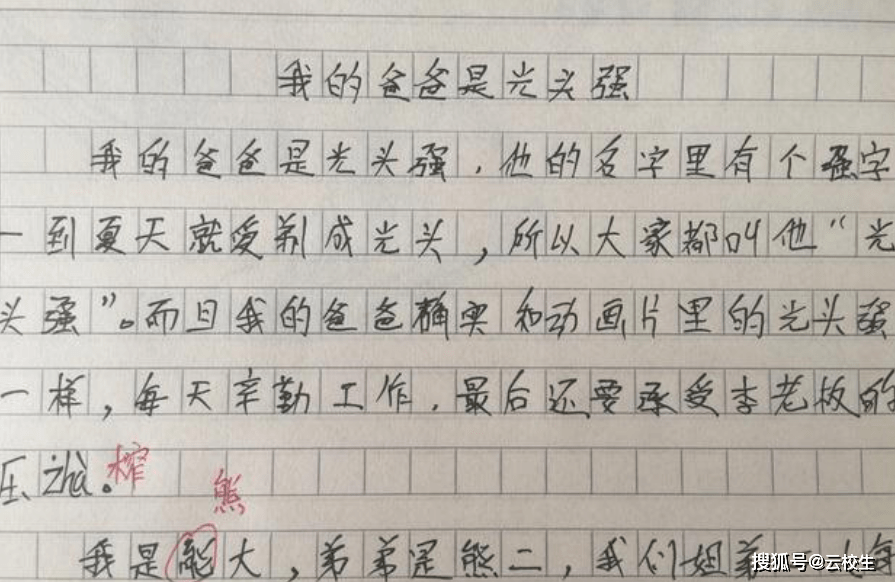 我的爸爸是光头强
我的爸爸是光头强，他的名字里有个强字
一到夏天就爱剃成光头，所以大家都叫他“光
头强”。而且我的爸爸确实和动画片里的光头强
一样，每天辛勤工作，最后还要承受李老板的
压zhà。榨
熊
我是能大，弟弟是熊二，我们姐弟
搜狐号@云校生